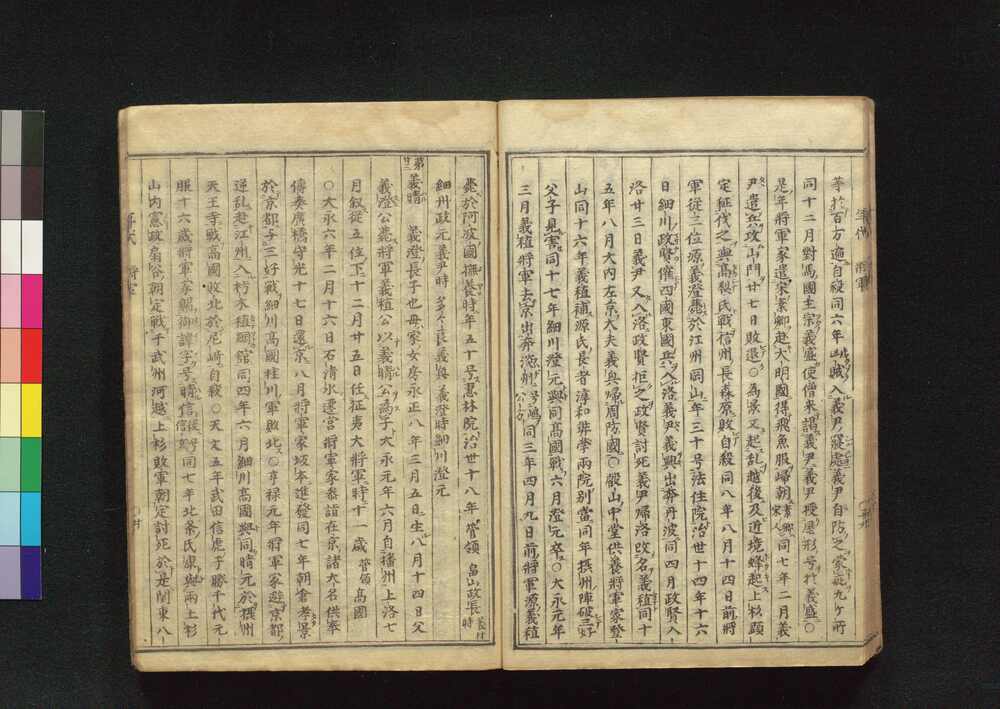 筭於百万遍自殺同六年山賊入義尹寢處義尹自防之蒙疵九ヶ所
同十二月對馬國主宗義盛使僧来謁義尹義尹授屋形号於義盛○
是年將軍家遣宋素卿赴大明國得飛魚服帰朝素卿宋人同七年二月義
尹遣兵攻山門廿七日敗還○為景又起乱越後及近境蜂起上杉顕
定征伐之與高梨氏戦信州長森原敗自殺同八年八月十四日前將
軍從三位源義澄薨於江州岡山年三十号法住院治世十四年十六
日細川政賢催四國東國兵入洛義尹義興出奔丹波同四月政賢入
洛廿三日義尹又入洛政賢拒之政賢討死義尹帰洛改名義稙同十
五年八月大内左京大夫義興帰周防國○叡山中堂供養將軍家登
山同十六年義稙補源氏長者淳和弉学両院別當同年摂州陣破三好
父子見害同十七年細川澄元與同高國戦六月澄元卒○大永元年
三月義稙將軍去京出奔淡州号嶋公方同三年四月九日前將軍源義稙
薨於阿波國撫養時年五十号惠林院治世十八年管領畠山政長義材時
細川政元義尹時多々良義興義澄時細川澄元
第廿三義晴 義澄長子也母家女房永正八年三月五日生八月十四日父
義澄公薨將軍義稙公以義晴公為子大永元年六月自播州上洛七
月叙從五位下十二月廿五日任征夷大將軍時十一歳管領高國
○大永六年二月十六日石清水遷宮將軍家参詣在京諸大名供奉
傳奏廣橋守光十七日還京八月將軍家坂本進發同七年朝倉孝景
於京都與三好戦細川高國桂川軍敗北○亨禄元年將軍家避京都
逆乱赴江州入朽木植綱舘同四年六月細川高國與同晴元於摂州
天王寺戦高國敗北於尼崎自殺○天文五年武田信虎子勝千代元
服十六歳將軍家賜御諱字号晴信後号信玄同七年北条氏康與両上杉
山内憲政扇谷朝定戦于武州河越上杉敗軍朝定討死於是関東八